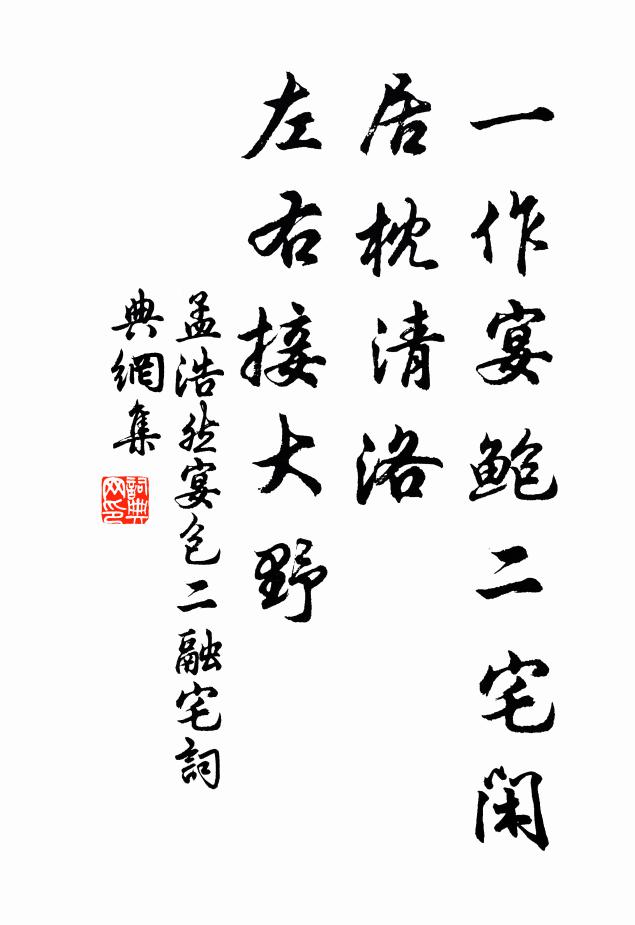 一作宴鮑二宅閑
居枕清洛
左右接大野
孟浩然宴包二融宅詞
典網集
詞典
网印